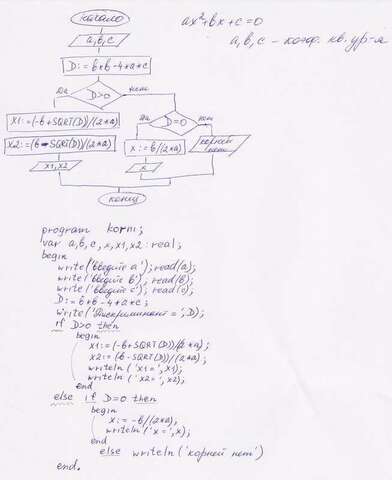 начало
ax²+bx+c=0
a,b,c - коэф. кв. ур-я
a,b,c
D:=b*b-4*a*c
да
D>0
нет
X1:=(-b+SQRT(D))/(2*a)
да
D=0
нет
X2:=(b-SQRT(D))/(2*a)
x:=b/(2*a)
корней
нет
x1,x2
x
конец
program korni;
var a,b,c,x,x1,x2:real;
begin
write('введите a');read(a);
write('введите b');read(b);
write('введите c');read(c);
D:=b*b-4*a*c;
write('Дискриминант=',D);
if D>0 then
begin
x1:=(-b+SQRT(D))/(2*a);
x2:=(b-SQRT(D))/(2*a);
writeln('x1=',x1);
writeln('x2=',x2);
end
else if D=0 then
begin
x:=-b/(2*a);
writeln('x=',x);
end
else writeln('корней нет')
end.